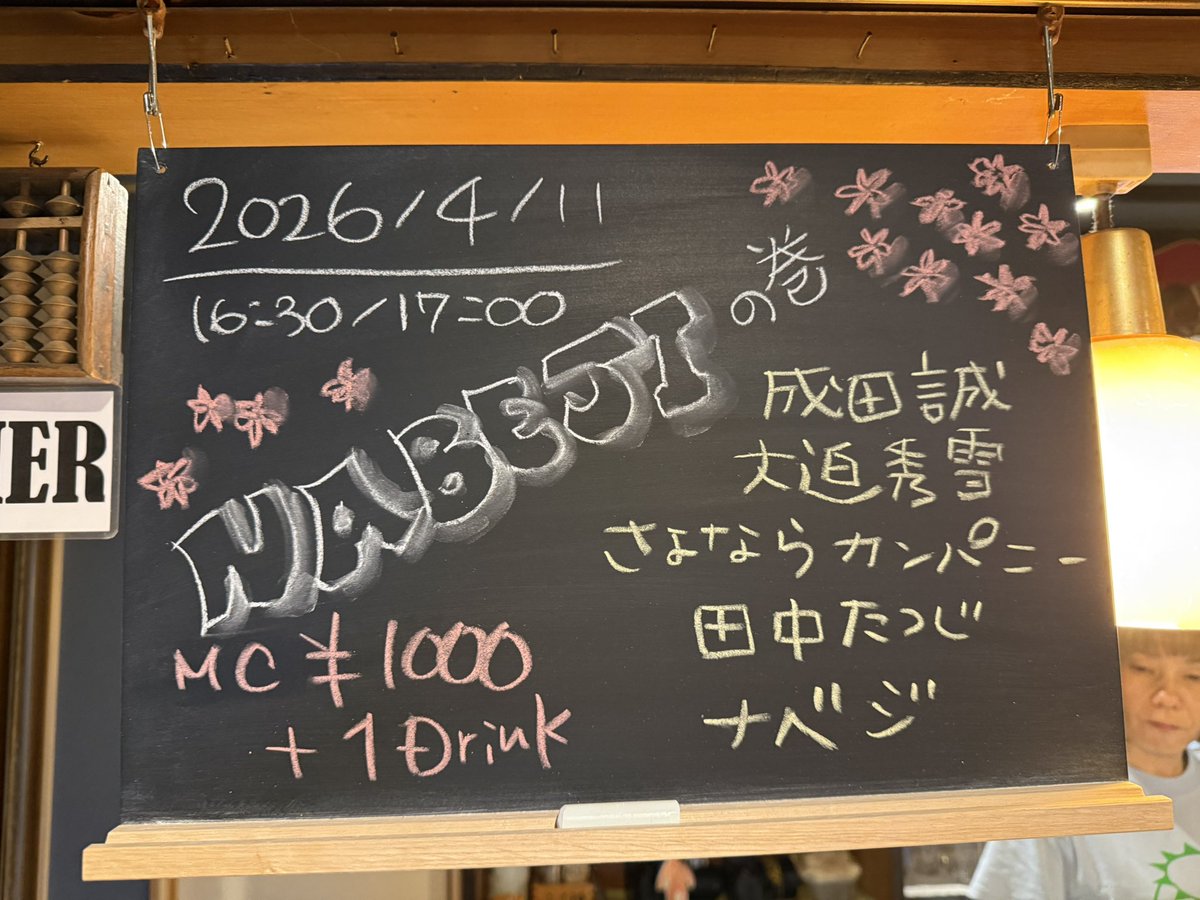 2026/4/11
16:30/17:00
NABEJIの巻
成田誠
大迫秀雪
さよならカンパニー
田中たつじ
ナベジ
MC ¥1000
+1Drink